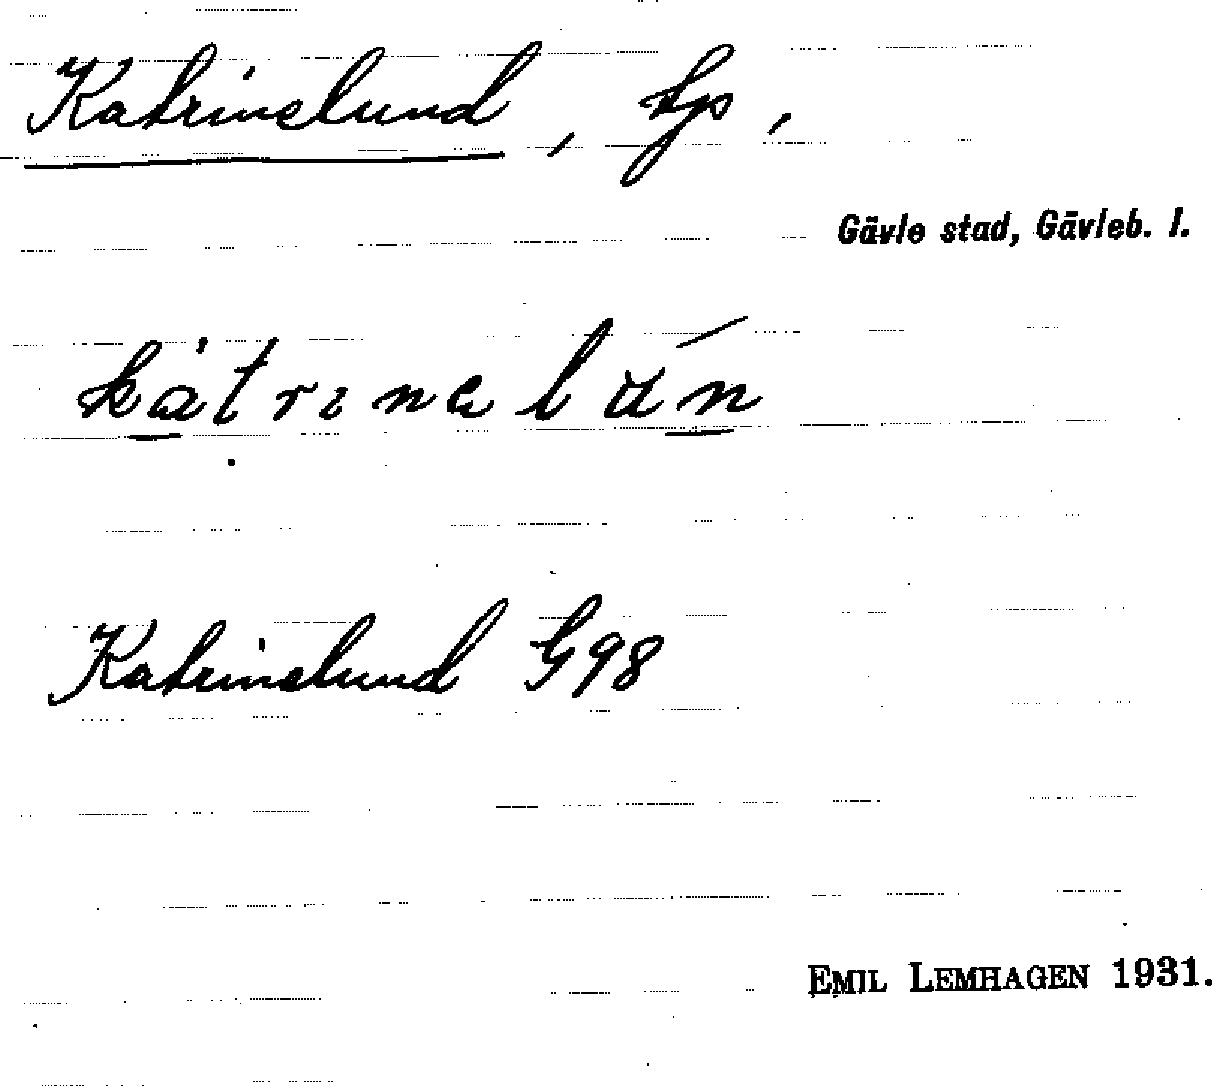 Katrinelund, hp,
Gävle stad, Gävleb. l.
Katrinelund G98
EMIL LEMHAGEN 1931.